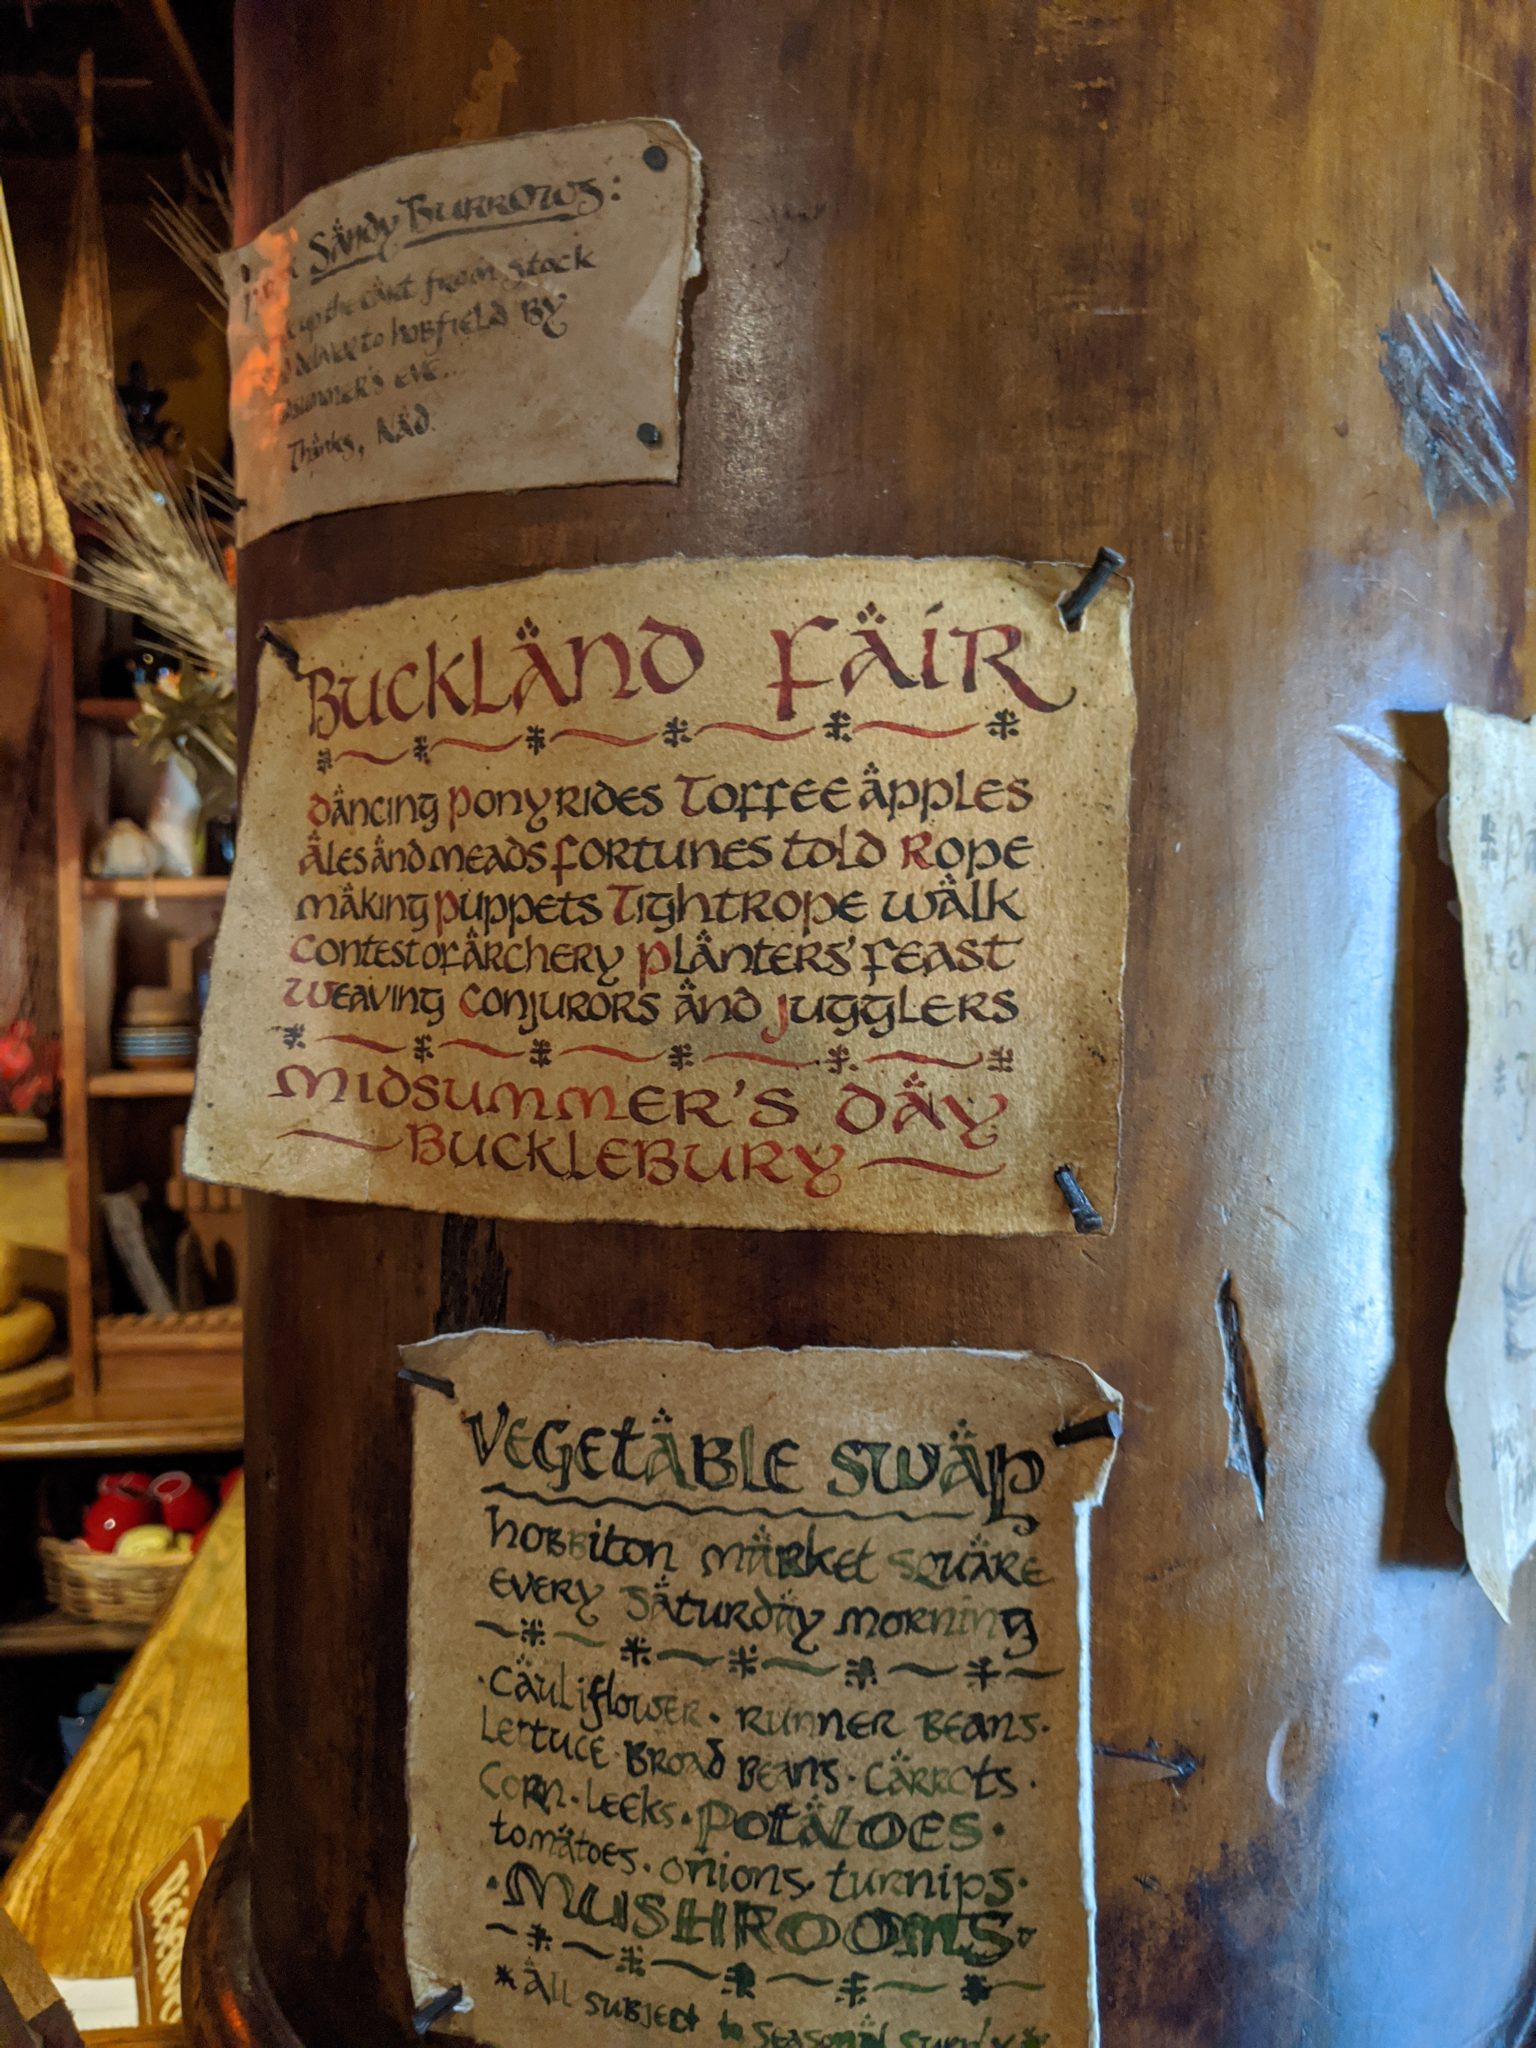 Sandy Burrows:
up the cart from Stock
to hobfield By
summer's eve...
Thinks, Nad.
Buckland Fair
Dancing Pony rides Toffee apples
Ales and meads Fortunes told Rope
making Puppets Tightrope walk
Contest of Archery Planters' feast
Weaving Conjurors and Jugglers
Midsummer's Day
Bucklebury
Vegetable Swap
Hobbiton Market Square
every Saturday morning
·Cauliflower· Runner Beans·
Lettuce·Broad Beans·Carrots·
Corn·Leeks·Potatoes·
tomatoes·onions·turnips·
·MUSHROOMS·
*All subject to seasonal supply*